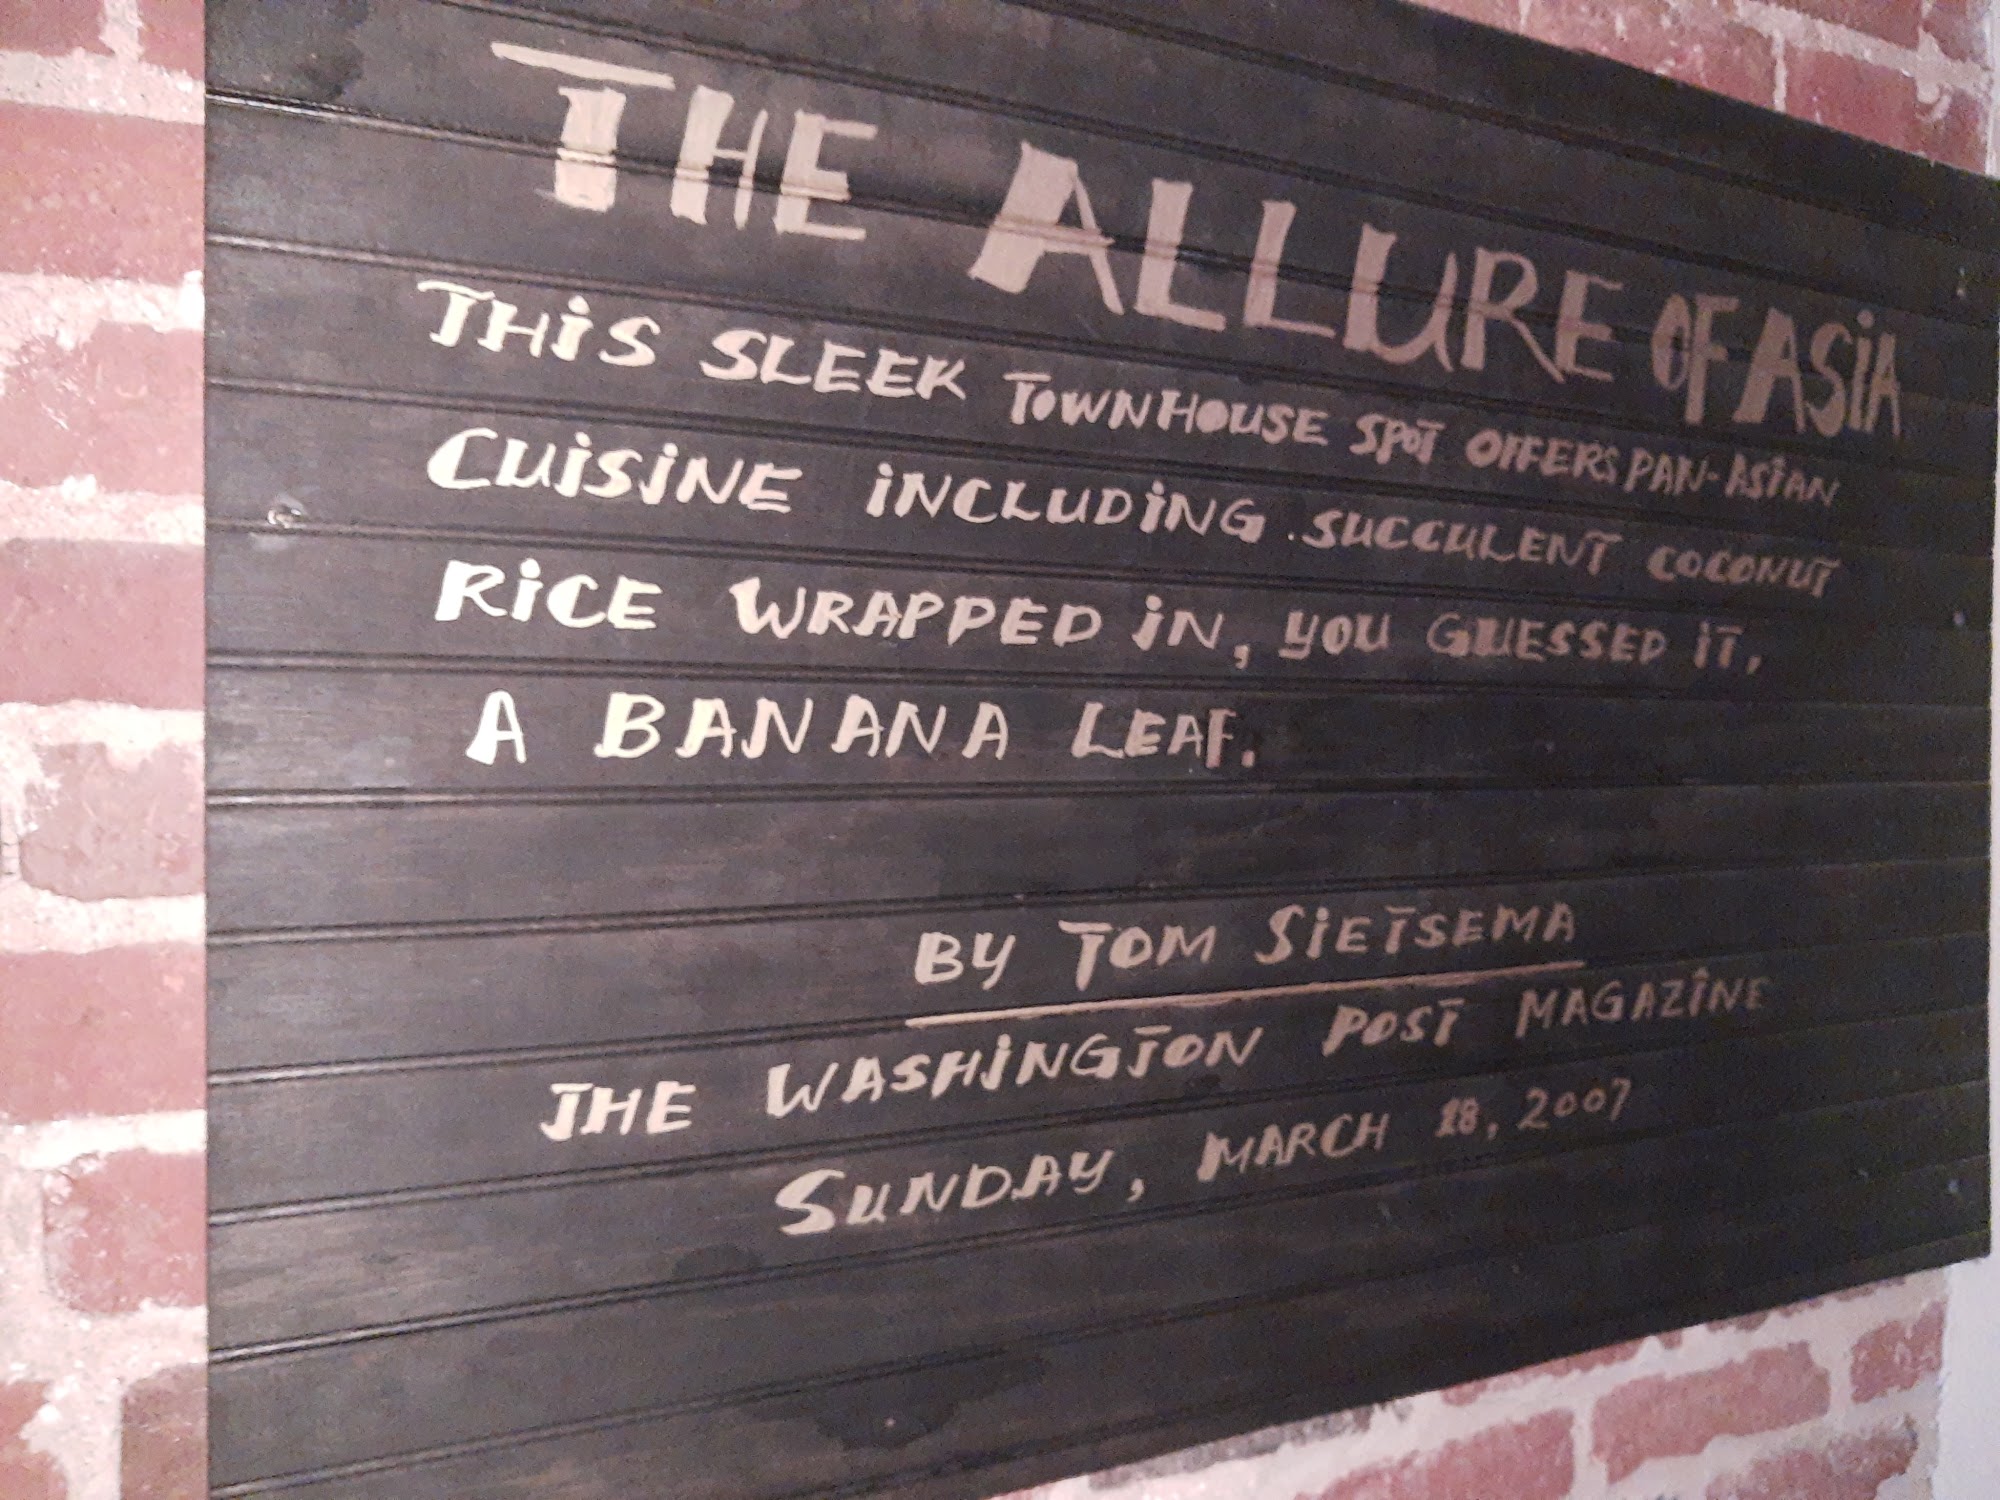 THE ALLURE OF ASIA
THIS SLEEK TOWNHOUSE SPOT OFFERS PAN-ASIAN
CUISINE INCLUDING SUCCULENT COCONUT
RICE WRAPPED IN, YOU GUESSED IT,
A BANANA LEAF.
BY TOM SIETSEMA
THE WASHINGTON POST MAGAZINE
SUNDAY, MARCH 18, 2007